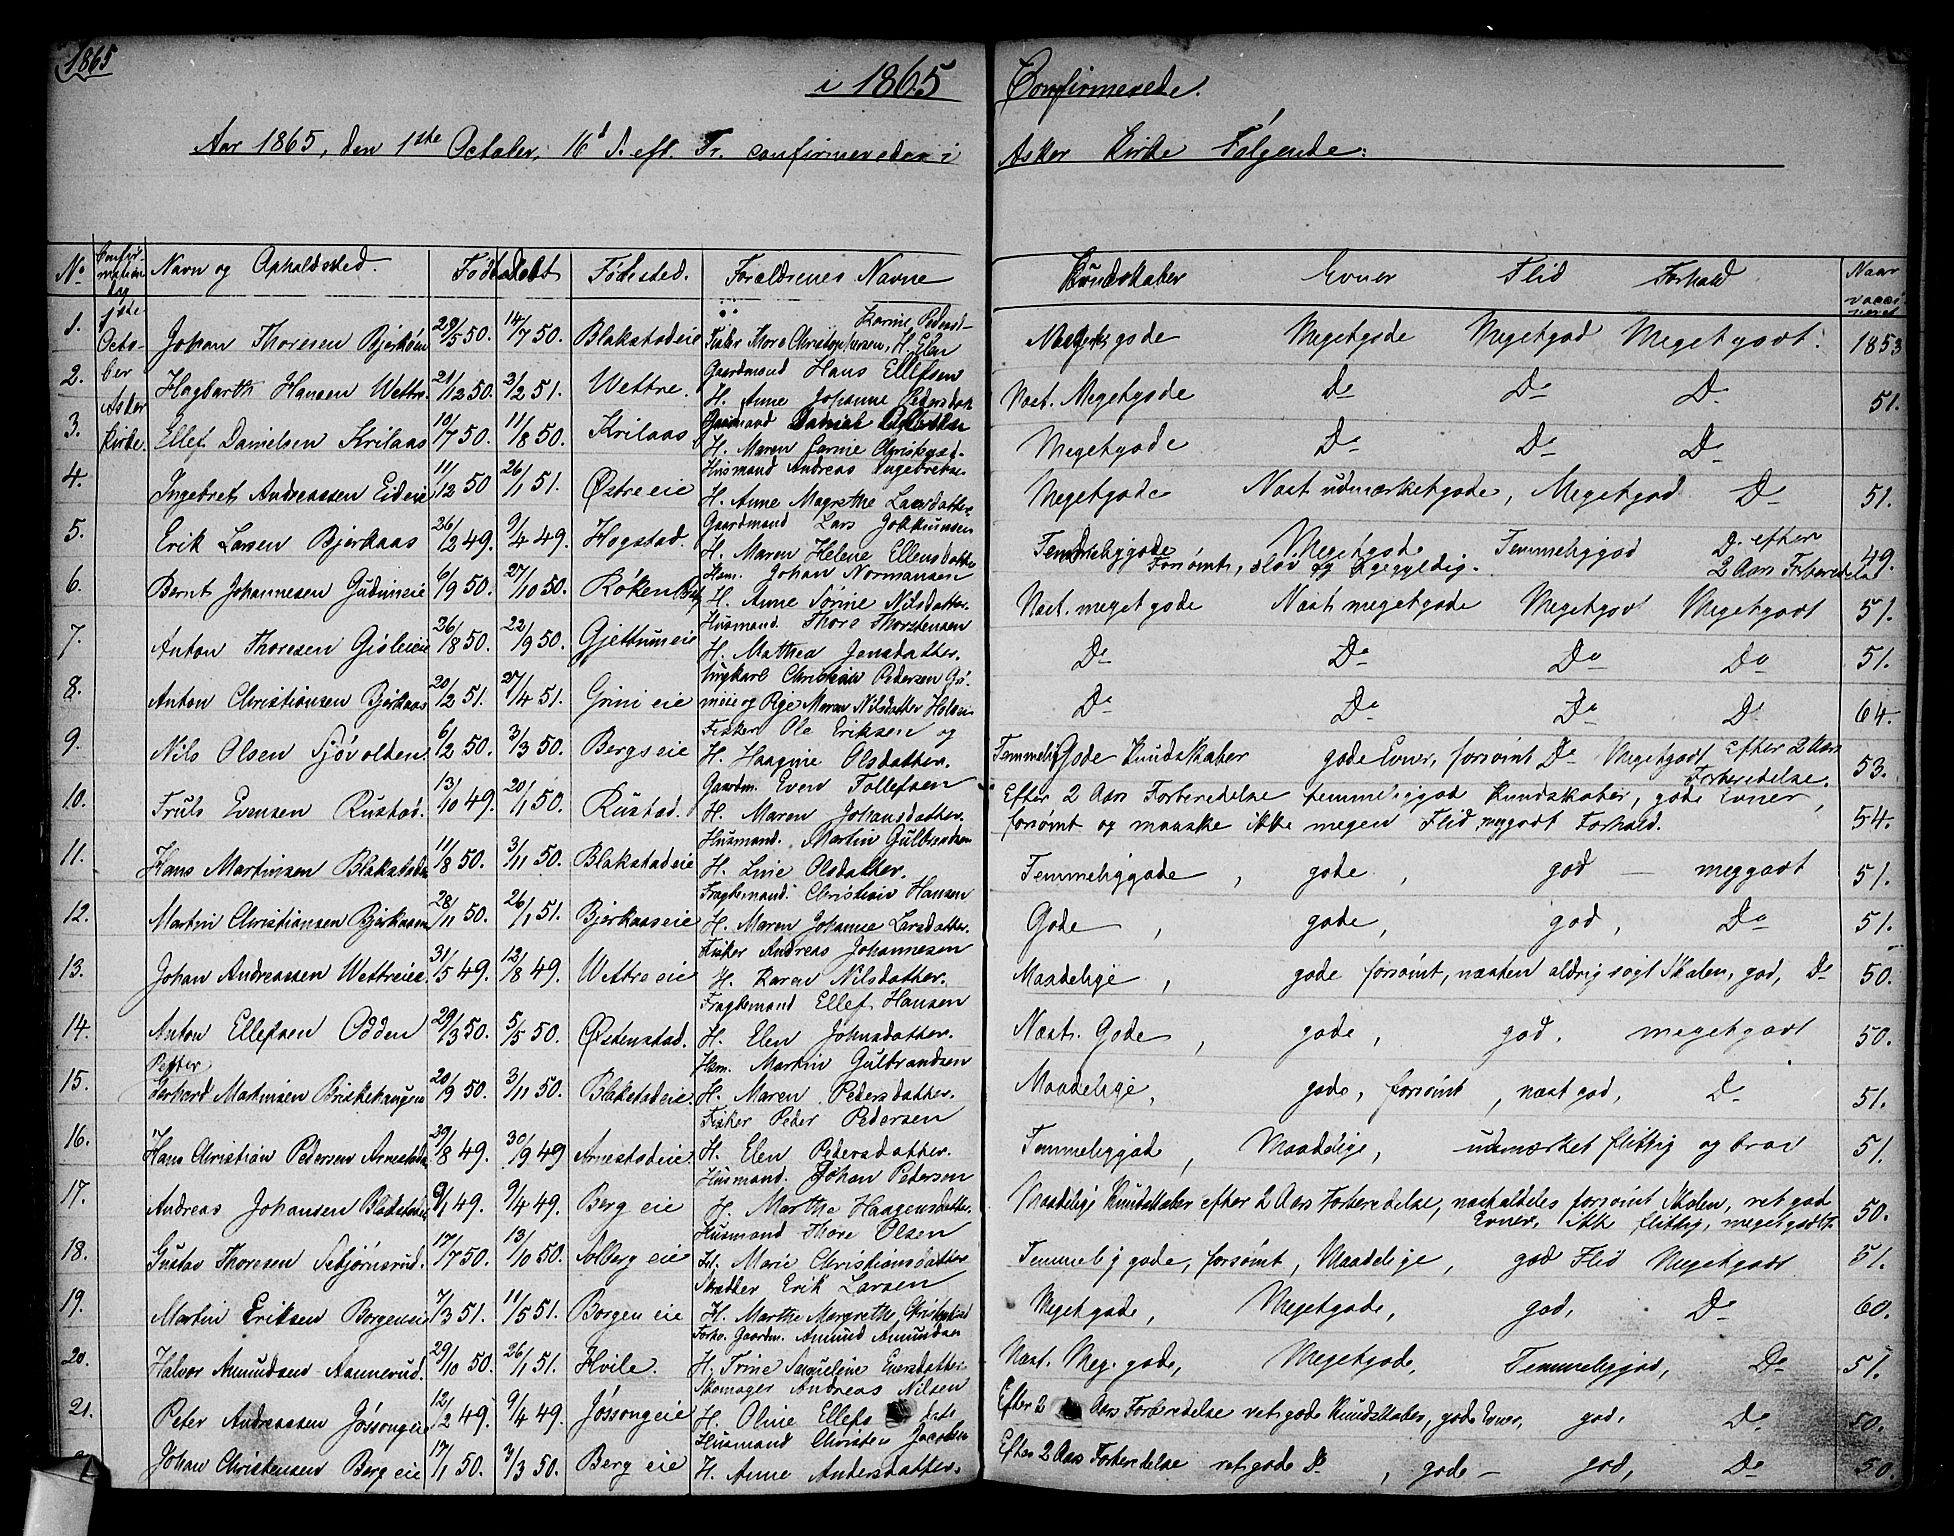 1865
i 1865 Confirmerede.
Aar 1865, den 1ste October, 16d S. eft. Tr. confirmeredes i Asker Kirke Følgende:
No Confirmation dag Navn og Opholdssted. Født Døbt Fødested. Forældrenes Navne Kundskaber Evner Flid Forhold Naar vaccineret
1ste October Asker Kirke.
1. Johan Thoresen Bjerkøen 29/5 50. 14/7 50. Blakstadeie Fisker Thore Christophersen, H. Karine Pedersd- Megetgode Megetgode Megetgod Megetgodt. 1853
2. Hagbarth Hansen Wettre. 21/12 50. 2/2 51. Wettre. Gaardmand Hans Ellefsen H. Anne Johanne Pedersdatt Næst. Megetgode Do Do Do 51.
3. Ellef Danielsen Krilaas 10/7 50. 11/8 50. Krilaas Gaardmand H. Maren Megetgode Do Do Do
4. Ingebret Andreassen Eideie 11/12 50 26/1 51. Østre eie Husmand Andreas Ingebretsen H. Anne Magrethe Larsdatter. Megetgode Næst udmærketgode, Megetgod Do 51.
5. Erik Larsen Bjerkaas 26/2 49. 9/4 49. Hogstad. Gaardmand Lars H. Maren Helene Ellensdatter Temmeliggode Megetgode Temmeliggod Do efter 2 Aars Forberedelse 49.
Forsømt, sløv og ligegyldig.
6. Bernt Johannesen Gudimeie 6/9 50. 27/10 50. Røken Husm. Johan Normansen H. Anne Sørine Nilsdatter. Næst. meget gode Næst megetgode Megetgodt Megetgodt 51.
7. Anton Thoresen Gisleeie 26/8 50. 22/9 50. Gjettumeie Husmand. Thore Thorstensen H. Mathea Jensdatter. Do Do Do Do 51.
8. Anton Christiansen Bjerkaas 20/2 51. 27/4 51. Grini eie Ungkarl Christian Pedersen Gismeie og Pige Maren Nilsdatter Do Do Do Do 64.
9. Nils Olsen Sjøvolden. 6/2 50. 3/3 50. Bergseie Fisker Ole Eriksen og H. Haagine Olsdatter. Temmelig Gode Kundskaber gode Evner, forsømt Do Megetgodt Efter 2 Aars Forberedelse. 53.
10. Truls Evensen Rustad. 13/10 49. 20/1 50. Rustad. Gaardm. Even Tollefsen H. Maren Johansdatter. Efter 2 Aars Forberedelse temmeliggod Kundskaber, gode Evner,
forsømt og maaske ikke megen Flid, meggodt Forhold. 54.
11. Hans Martinsen Blakstad 11/8 50. 3/11 50. Blakstadeie Husmand. Martin Gulbrandsen H. Line Olsdatter. Temmeliggode, gode, god — meggodt 51.
12. Martin Christiansen Bjerkaasen 28/11 50. 26/1 51. Bjerkaaseie Fragtemand. Christian Hansen H. Maren Johanne Larsdatter. Gode, gode, god, Do 51.
13. Johan Andreassen Wettreeie. 31/5 49. 12/8 49. Wettre eie Fisker Andreas Johannesen H. Karen Nilsdatter. Maadelige, gode forsømt, næsten aldrig søgt Skolen, god, Do 50.
14. Anton Ellefsen Odden 29/3 50. 5/5 50. Østenstad. Fragtemand Ellef Hansen H. Elen Johnsdatter. Næst. Gode, gode, god. megetgodt 50.
15. Petter Gerhard Martinsen Briskehaugen 20/9 50. 3/11 50. Blakstadeie. Husm. Martin Gulbrandsen H. Maren Pedersdatter. Maadelige, gode, forsømt, næst god, Do 51.
16. Hans Christian Pedersen Arnestad 29/8 49. 30/9 49 Arnestadeie. Fisker Peder Pedersen H. Elen Pedersdatter. Temmeliggode, Maadelige, udmærket flittig og brav 51.
17. Andreas Johansen 6/1 49. 9/4 49. Berg eie Husmand. Johan Petersen H. Marthe Haagensdatter. Maadelig Kundskaber efter 2 Aars Forberedelse, næstaldeles forsømt Skolen, ret god
Evner, ikke flittig, megetgodtF. 50.
18. Gustav Thoresen Sebjørnsrud. 17/7 50. 13/10 50. Solberg eie Husmand Thore Olsen H. Marie Christiansdatter Temmelig gode, forsømt, Maadelige, god Flid Megetgodt 51.
19. Martin Eriksen Borgeneie 7/3 51. 11/5 51. Borgen eie Skrædder Erik Larsen H. Marthe Margrethe Megetgode, Megetgode, god, Do 60.
20. Halvor Amundsen Aannerud. 29/10 50. 26/1 51. Hvile. Forhv. Gaardm. Amund Amundsen H. Trine Jaqueline Eversdatter Næst. Meg. gode, Megetgode, Temmeliggod, Do 51.
21. Peter Andreassen Jøssongeie 12/2 49. 9/4 49. Jøssongeie Skomager Andreas Nilsen H. Oline Ellefs datt Efter 2 Aars Forberedelse ret gode Kundskaber, gode Evner, god, Do 50.
Johan Christensen Berg eie 17/1 50. 3/3 50. Berg eie Husmand Christen Jacobsen H. Anne Andersdatter. Efter 2 Aars Forberedelse ret gode Do, gode — god, Do 50.